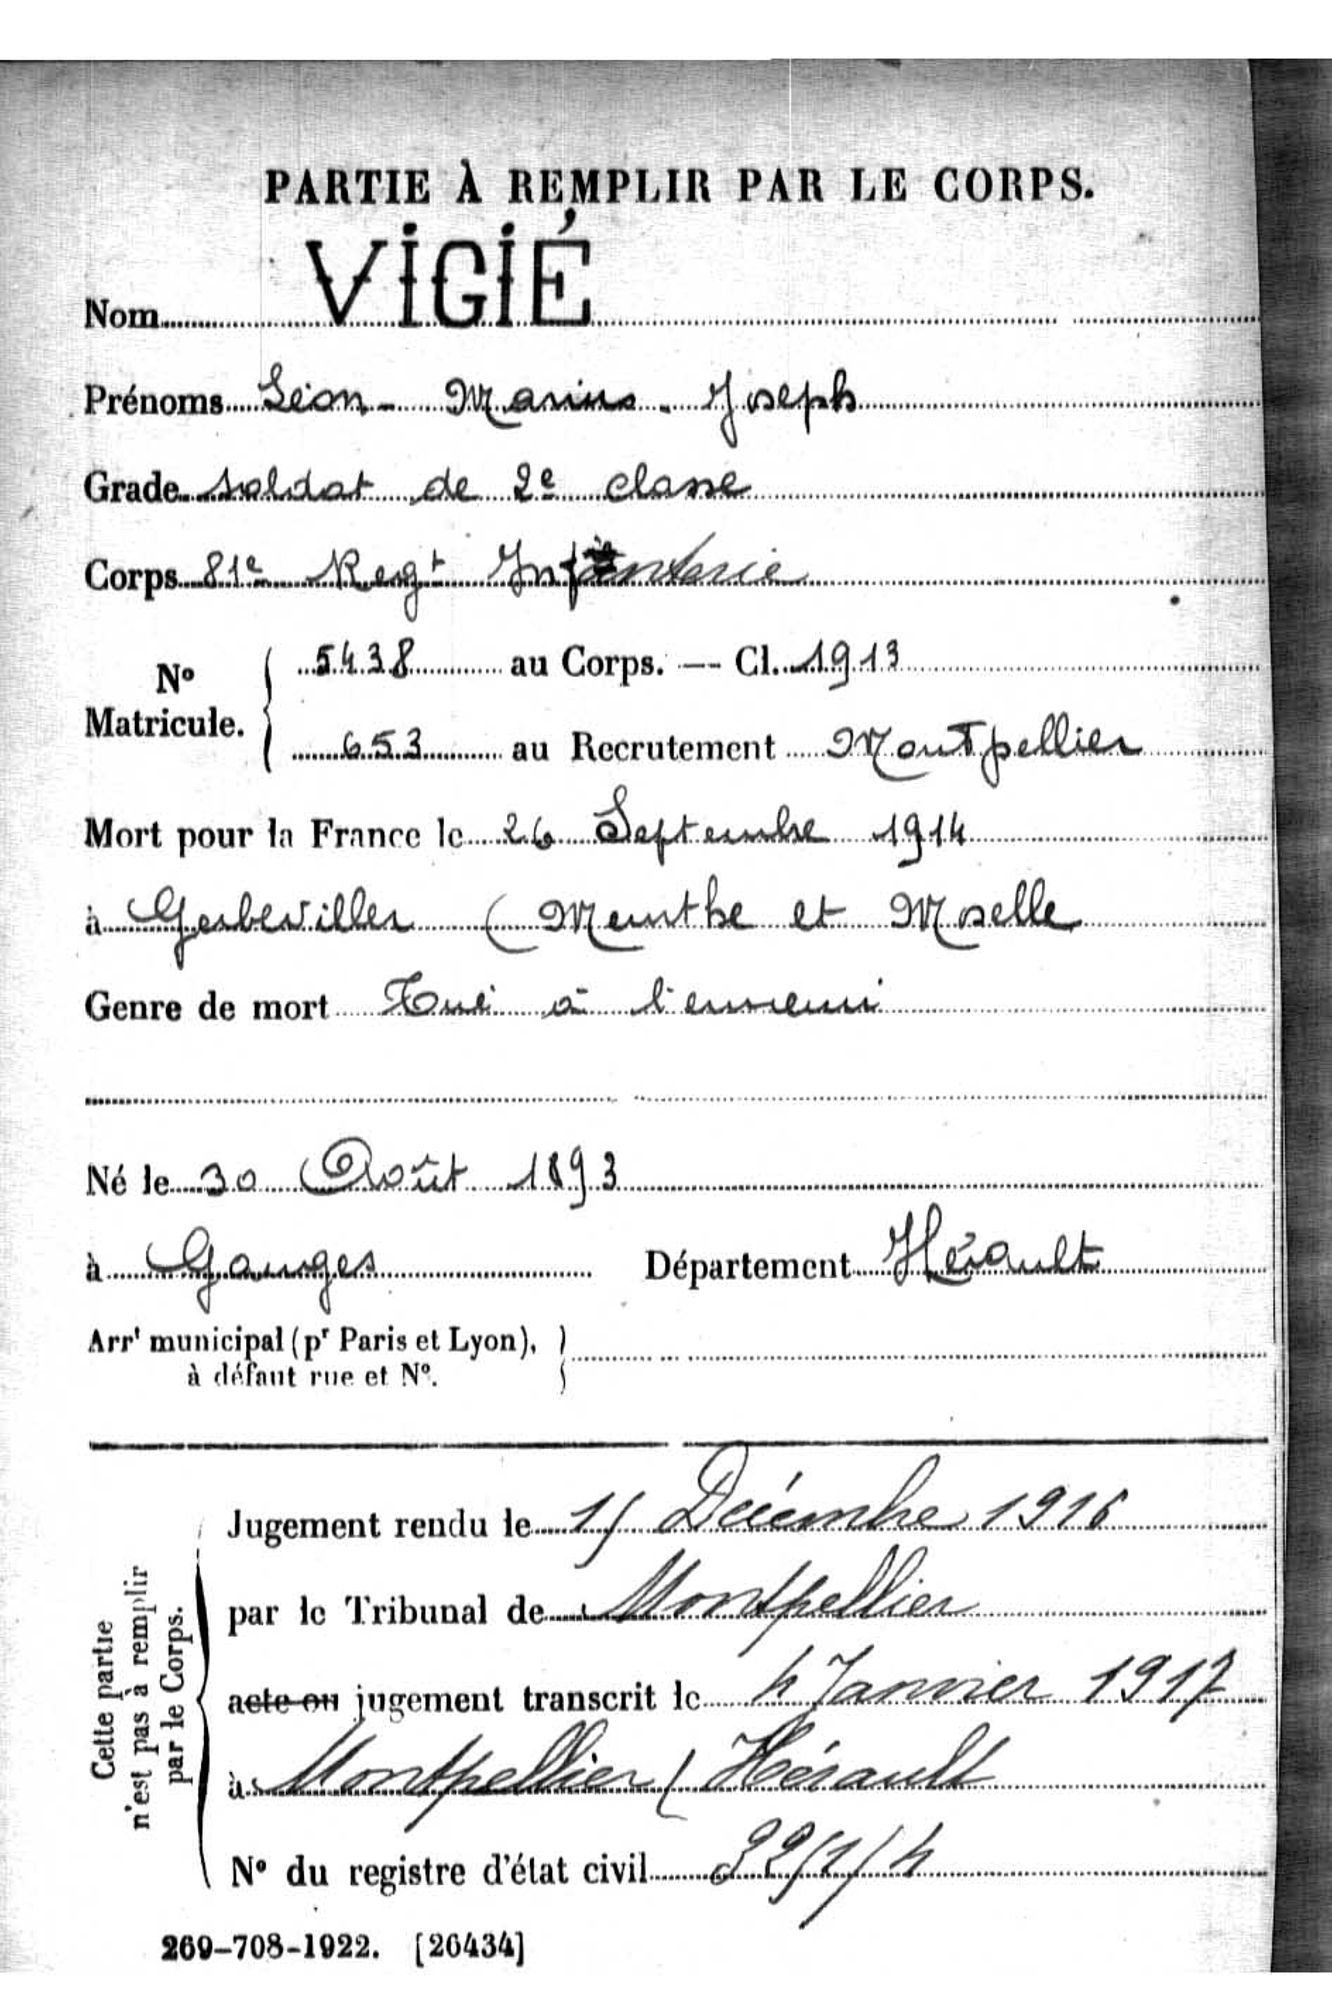 PARTIE À REMPLIR PAR LE CORPS.
Nom VIGIÉ
Prénoms Léon - Marius - Joseph
Grade soldat de 2e classe
Corps 81e Regt Infanterie
No Maticule. { 5438 au Corps. — Cl. 1913
653 au Recrutement Montpellier
Mort pour la France le 26 Septembre 1914
à Gerbeviller (Meurthe et Moselle
Genre de mort Tué à l'ennemi
Né le 30 Août 1893
à Ganges Département Hérault
Arrt municipal (pr Paris et Lyon), }
à défaut rue et No.
Cette partie
n'est pas à remplir
par le Corps.
Jugement rendu le 15 Décembre 1916
par le Tribunal de Montpellier
acte ou jugement transcrit le 4 Janvier 1917
à Montpellier (Hérault
No du registre d'état civil
269-708-1922. [26434]